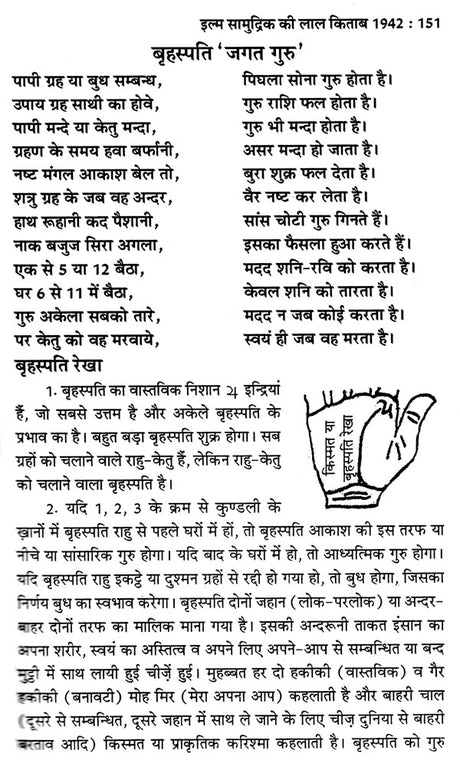 इल्म सामुद्रिक की लाल किताब 1942 : 151
बृहस्पति 'जगत गुरु'
पापी ग्रह या बुध सम्बन्ध, पिघला सोना गुरु होता है।
उपाय ग्रह साथी का होवे, गुरु राशि फल होता है।
पापी मन्दे या केतु मन्दा, गुरु भी मन्दा होता है।
ग्रहण के समय हवा बर्फानी, असर मन्दा हो जाता है।
नष्ट मंगल आकाश बेल तो, बुरा शुक्र फल देता है।
शत्रु ग्रह के जब वह अन्दर, वैर नष्ट कर लेता है।
हाथ रूहानी कद पैशानी, सांस चोटी गुरु गिनते हैं।
नाक बजुज सिरा अगला, इसका फैसला हुआ करते हैं।
एक से 5 या 12 बैठा, मदद शनि-रवि को करता है।
घर 6 से 11 में बैठा, केवल शनि को तारता है।
गुरु अकेला सबको तारे, मदद न जब कोई करता है।
पर केतु को वह मरवाये, स्वयं ही जब वह मरता है।
बृहस्पति रेखा
1. बृहस्पति का वास्तविक निशान ♃ इन्द्रियां
हैं, जो सबसे उत्तम है और अकेले बृहस्पति के
प्रभाव का है। बहुत बड़ा बृहस्पति शुक्र होगा। सब
ग्रहों को चलाने वाले राहु-केतु हैं, लेकिन राहु-केतु
को चलाने वाला बृहस्पति है।
♃
किस्मत या
बृहस्पति रेखा
2. यदि 1, 2, 3 के क्रम से कुण्डली के
ख़ानों में बृहस्पति राहु से पहले घरों में हों, तो बृहस्पति आकाश की इस तरफ या
नीचे या सांसारिक गुरु होगा। यदि बाद के घरों में हो, तो आध्यत्मिक गुरु होगा।
यदि बृहस्पति राहु इकट्टे या दुश्मन ग्रहों से रद्दी हो गया हो, तो बुध होगा, जिसका
निर्णय बुध का स्वभाव करेगा। बृहस्पति दोनों जहान (लोक-परलोक) या अन्दर-
बाहर दोनों तरफ का मालिक माना गया है। इसकी अन्दरूनी ताकत इंसान का
अपना शरीर, स्वयं का अस्तित्व व अपने लिए अपने-आप से सम्बन्धित या बन्द
मुट्ठी में साथ लायी हुई चीज़ें हुई। मुहब्बत हर दो हकीकी (वास्तविक) व गैर
हकीकी (बनावटी) मोह मिर (मेरा अपना आप) कहलाती है और बाहरी चाल
(दूसरे से सम्बन्धित, दूसरे जहान में साथ ले जाने के लिए चीज़ दुनिया से बाहरी
बरताव आदि) किस्मत या प्राकृतिक करिश्मा कहलाती है। बृहस्पति को गुरु